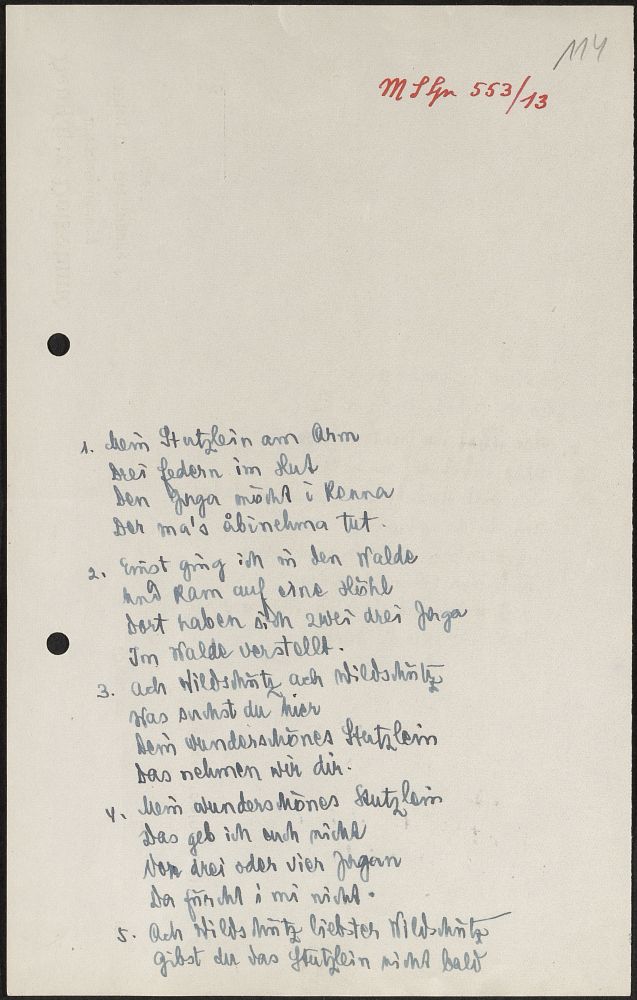 114
553/13
1. Mein Stutzlein am Arm
Drei Federn im Hut
Den Jaga möcht i kenna
Der ma's åbinehma tut.
2. Einst ging ich in den Walde
Und kam auf eine Höhl
Dort haben sich zwei drei Jaga
Im Walde verstellt.
3. Ach Wildschütz ach Wildschütz
Was suchst du hier
Dein wunderschönes Stutzlein
Das nehmen wir dir.
4. Mein wunderschönes Stutzlein
Das geb ich euch nicht
Von drei oder vier Jagan
Da fürcht i mi nicht.
5. Ach Wildschütz liebster Wildschütz
gibst du das Stutzlein nicht bald